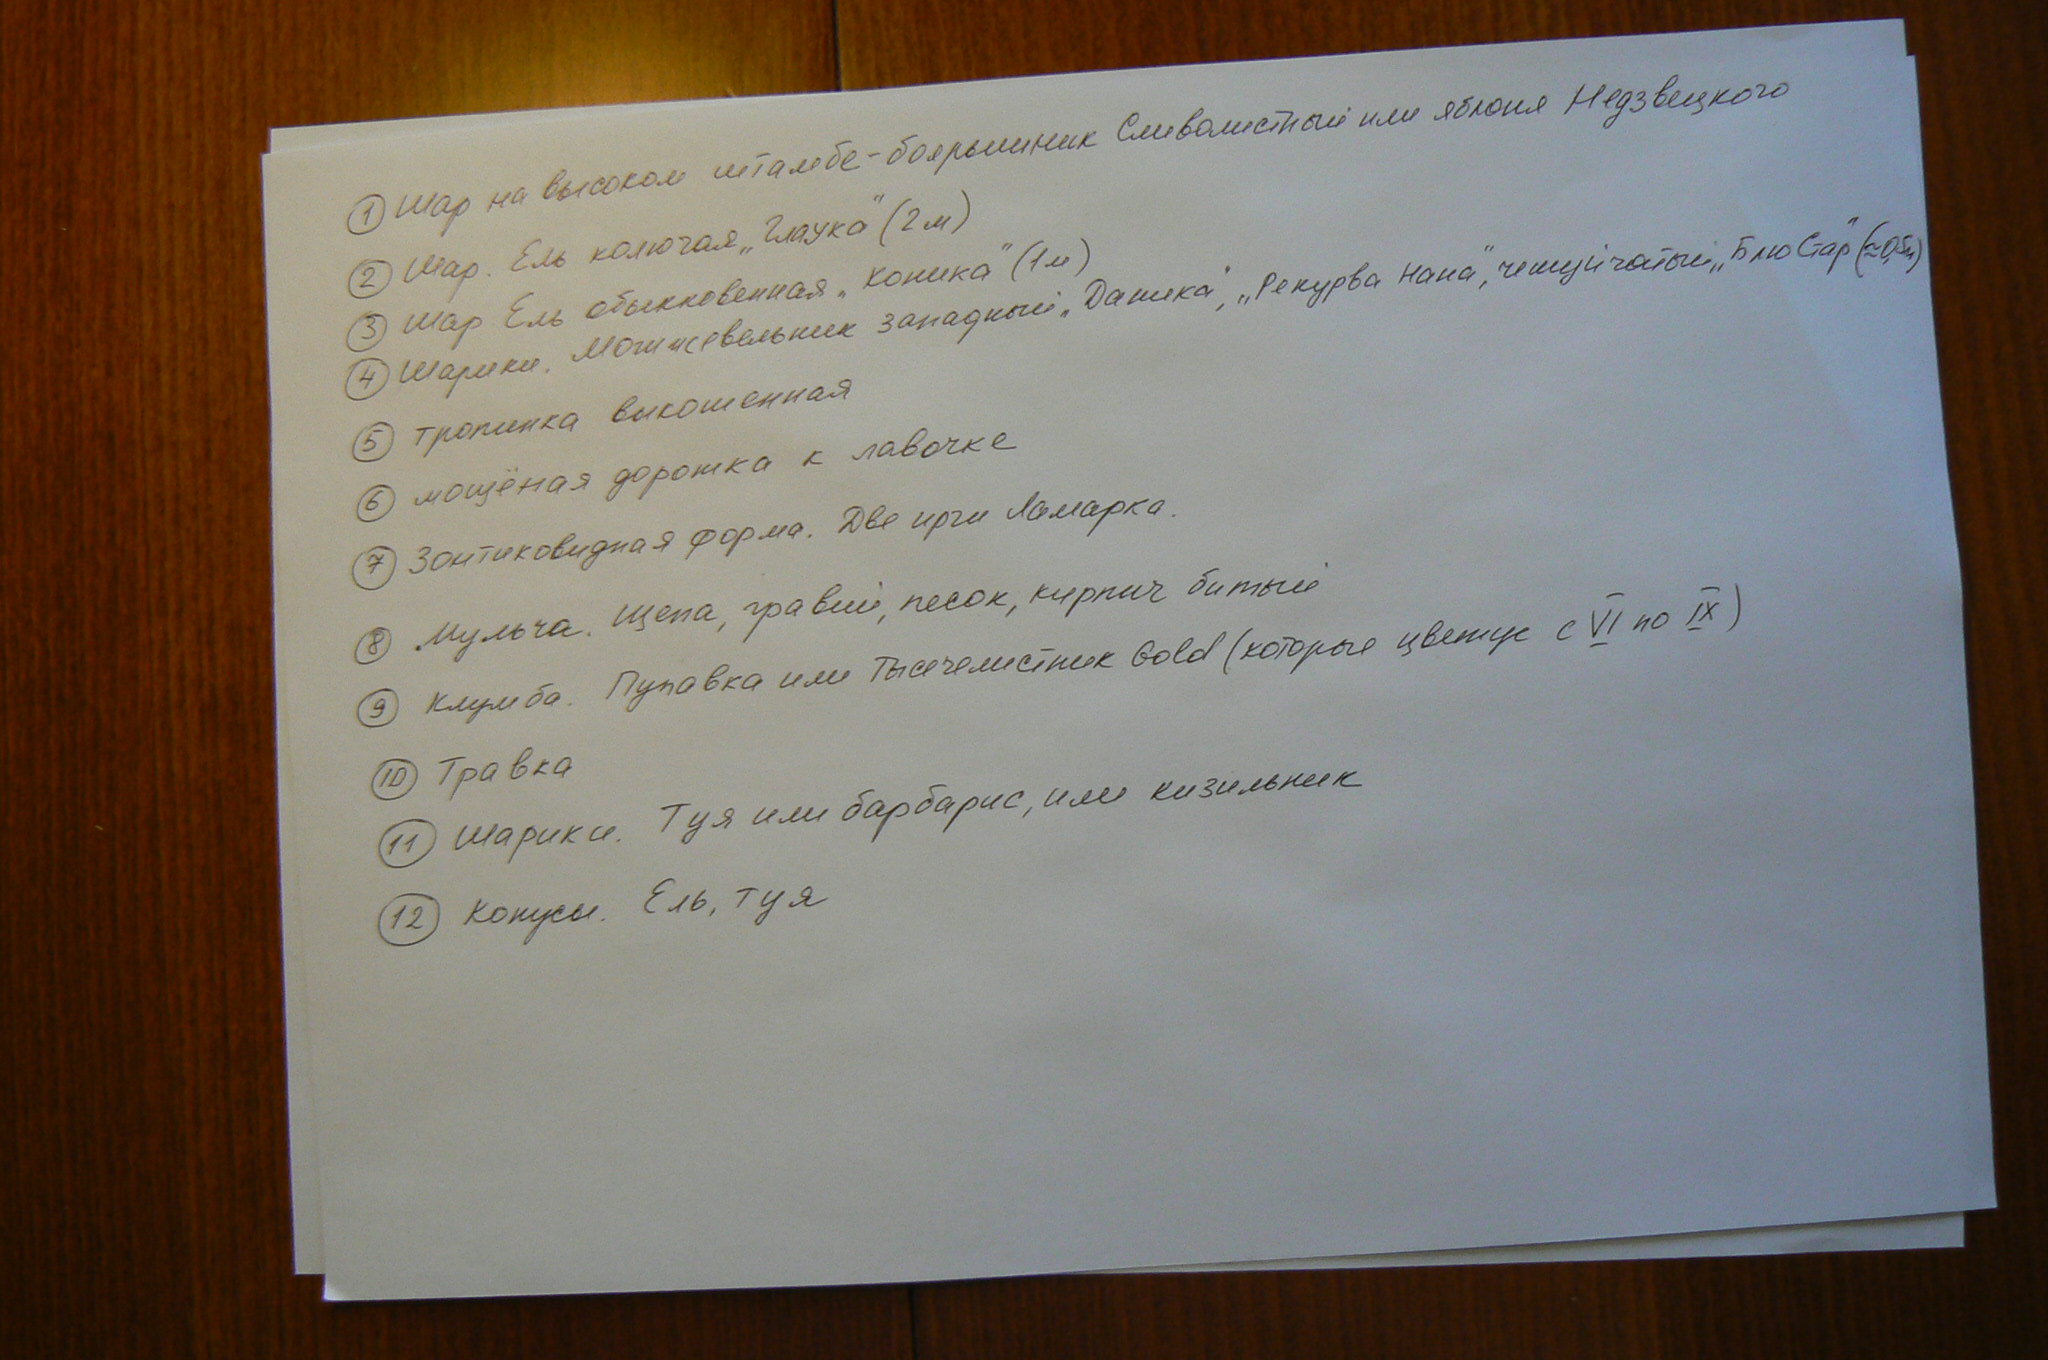 ① Шар на высоком штамбе - боярышник Сливолистный или яблоня Недзвецкого
② Шар. Ель колючая „Глаука" (2 м)
③ Шар Ель обыкновенная „Коника" (1 м)
④ Шарики. Можжевельник западный „Даника", „Рекурва Нана", чешуйчатый „Блю Стар" (≈0,5м)
⑤ тропинка выкошенная
⑥ мощёная дорожка к лавочке
⑦ Зонтиковидная форма. Две ирги Ламарка.
⑧ Мульча. Щепа, гравий, песок, кирпич битый
⑨ Клумба. Пупавка или Тысячелистник Gold (которые цветут с VI по IX)
⑩ Травка
⑪ Шарики. Туя или барбарис, или кизильник
⑫ Конусы. Ель, туя